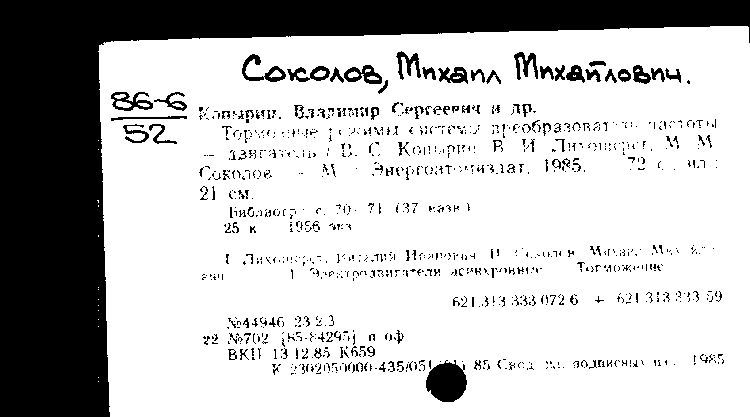 Соколов, Михаил Михайлович.
86-6
52
Копырин, Владимир Сергеевич и др.
Тормозные режимы системы преобразователь частоты
— двигатель / В. С. Копырин, В. И. Лихошерст, М. М.
Соколов. — М. : Энергоатомиздат, 1985. 72 с. ил.;
21 см.
Библиогр.: с. 70-71 (37 назв.)
25 к 1956 экз
I. Лихошерст, Виталий Иванович. II. Соколов, Михаил
1. Электродвигатели асинхронные Торможение
621.313.333.072.6 + 621.313.333.59
№44946 23.2.3
22 №702 [85-84295] п оф
ВКП 13.12.85 К659
К 2302050000-435/051 85 Свод. пл. подписных 1985